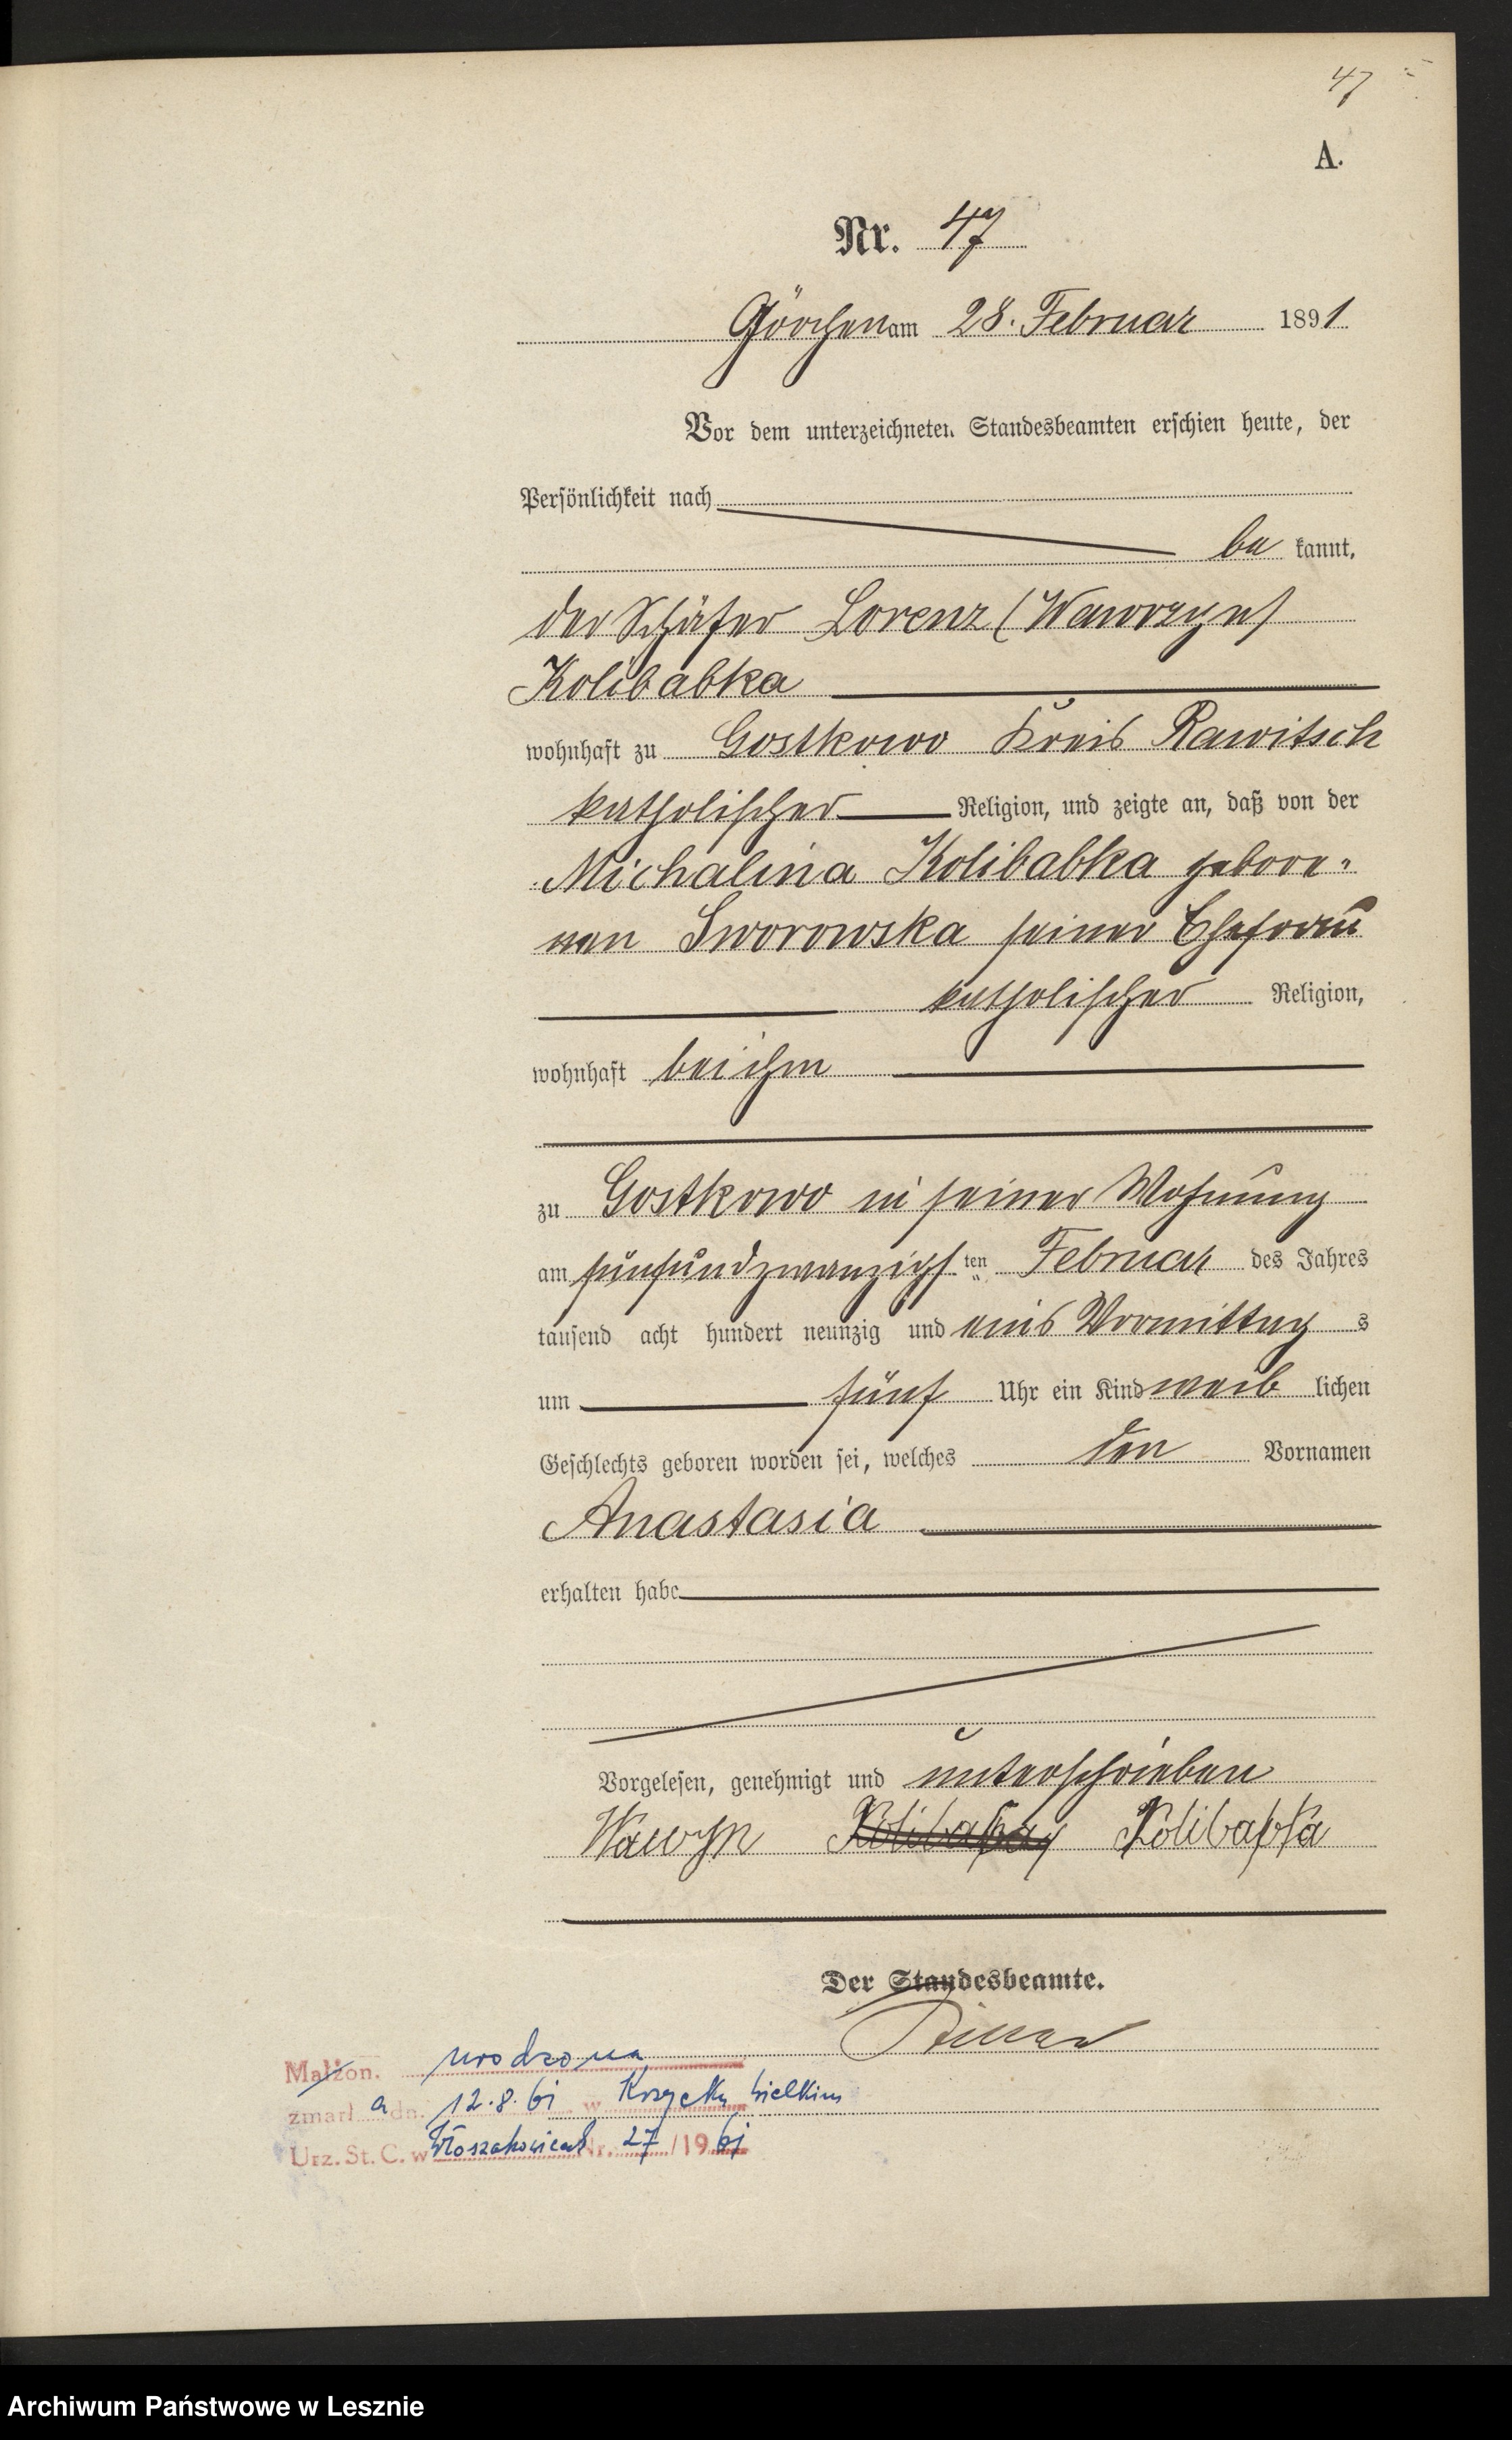 47
A.
Nr. 47
Görchen am 28. Februar 1891
Vor dem unterzeichneten Standesbeamten erschien heute, der
Persönlichkeit nach
be kannt,
der Schäfer Lorenz (Wawrzyn)
Kolibabka
wohnhaft zu Gostkowo Kreis Rawitsch
katholischer Religion, und zeigte an, daß von der
Michalina Kolibabka gebore-
nen Sworowska seiner Ehefrau
katholischer Religion,
wohnhaft bei ihm
zu Gostkowo in seiner Wohnung
am fünfundzwanzigsten Februar des Jahres
tausend acht hundert neunzig und eins Vormittag s
um fünf Uhr ein Kind weib lichen
Geschlechts geboren worden sei, welches den Vornamen
Anastasia
erhalten habe
Vorgelesen, genehmigt und unterschrieben
Wawzyn Kolibabka
Der Standesbeamte.
Małżon. urodzona
zmarł a dn. 12.8.61 w Krzycku Wielkim
Urz. St. C. w Włoszakowicach Nr. 27 /1961
Archiwum Państwowe w Lesznie